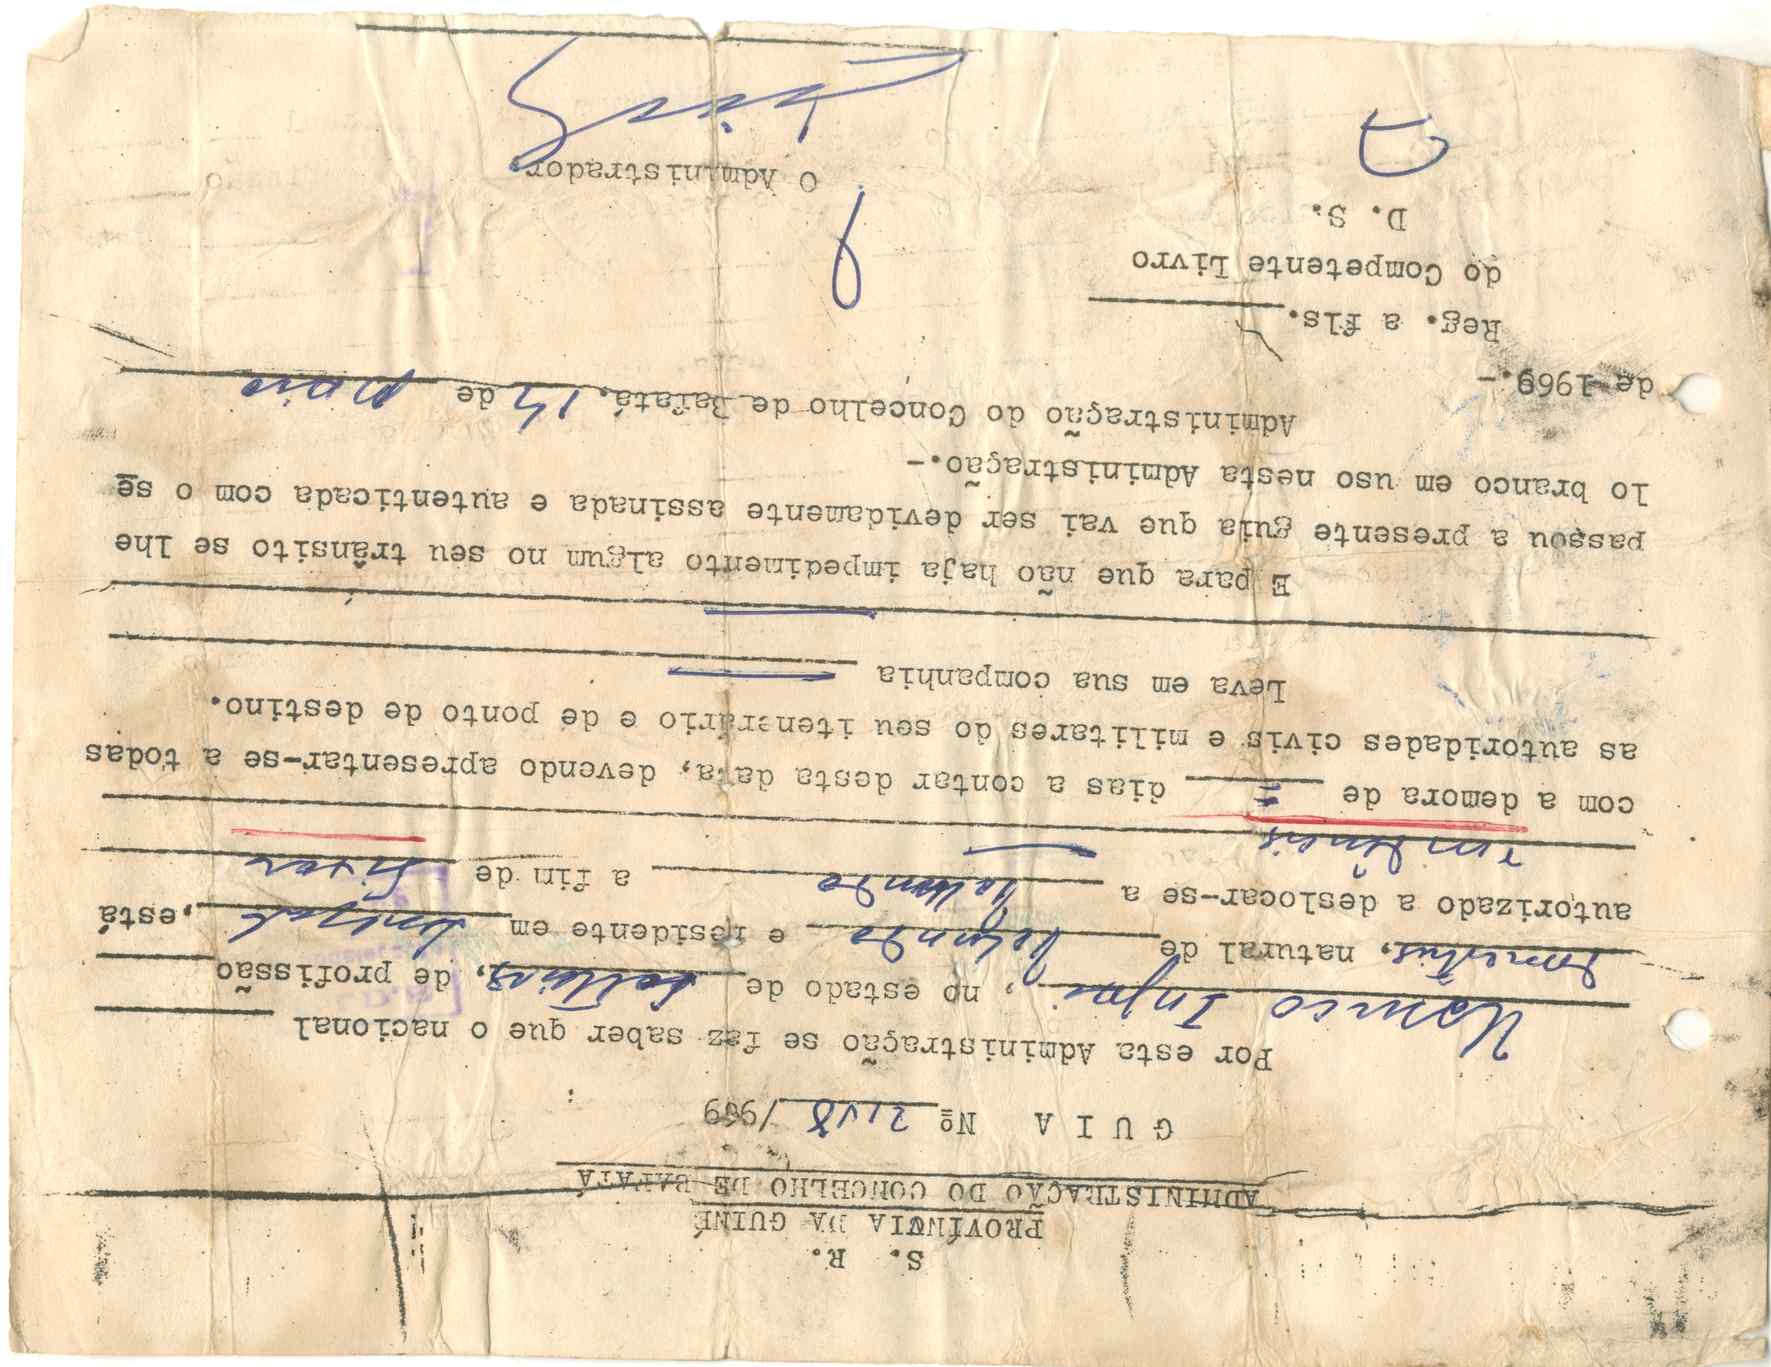 S. R.
PROVÍNCIA DA GUINÉ
ADMINISTRAÇÃO DO CONCELHO DE BAFATÁ
G U I A Nº /969
Por esta Administração se faz saber que o nacional
, no estado de solteiro, de profissão
, natural de e residente em , está
autorizado a deslocar-se a a fim de fixar
residência
com a demora de = dias a contar desta data, devendo apresentar-se a todas
as autoridades civis e militares do seu itenerário e de ponto de destino.
Leva em sua companhia
E para que não haja impedimento algum no seu trânsito se lhe
passou a presente guia que vai ser devidamente assinada e autenticada com o se
lo branco em uso nesta Administração.-
Administração do Concelho de Bafatá, 17 de Maio
de 1969.-
Reg. a fls.
do Competente Livro
D. S.
O Administrador